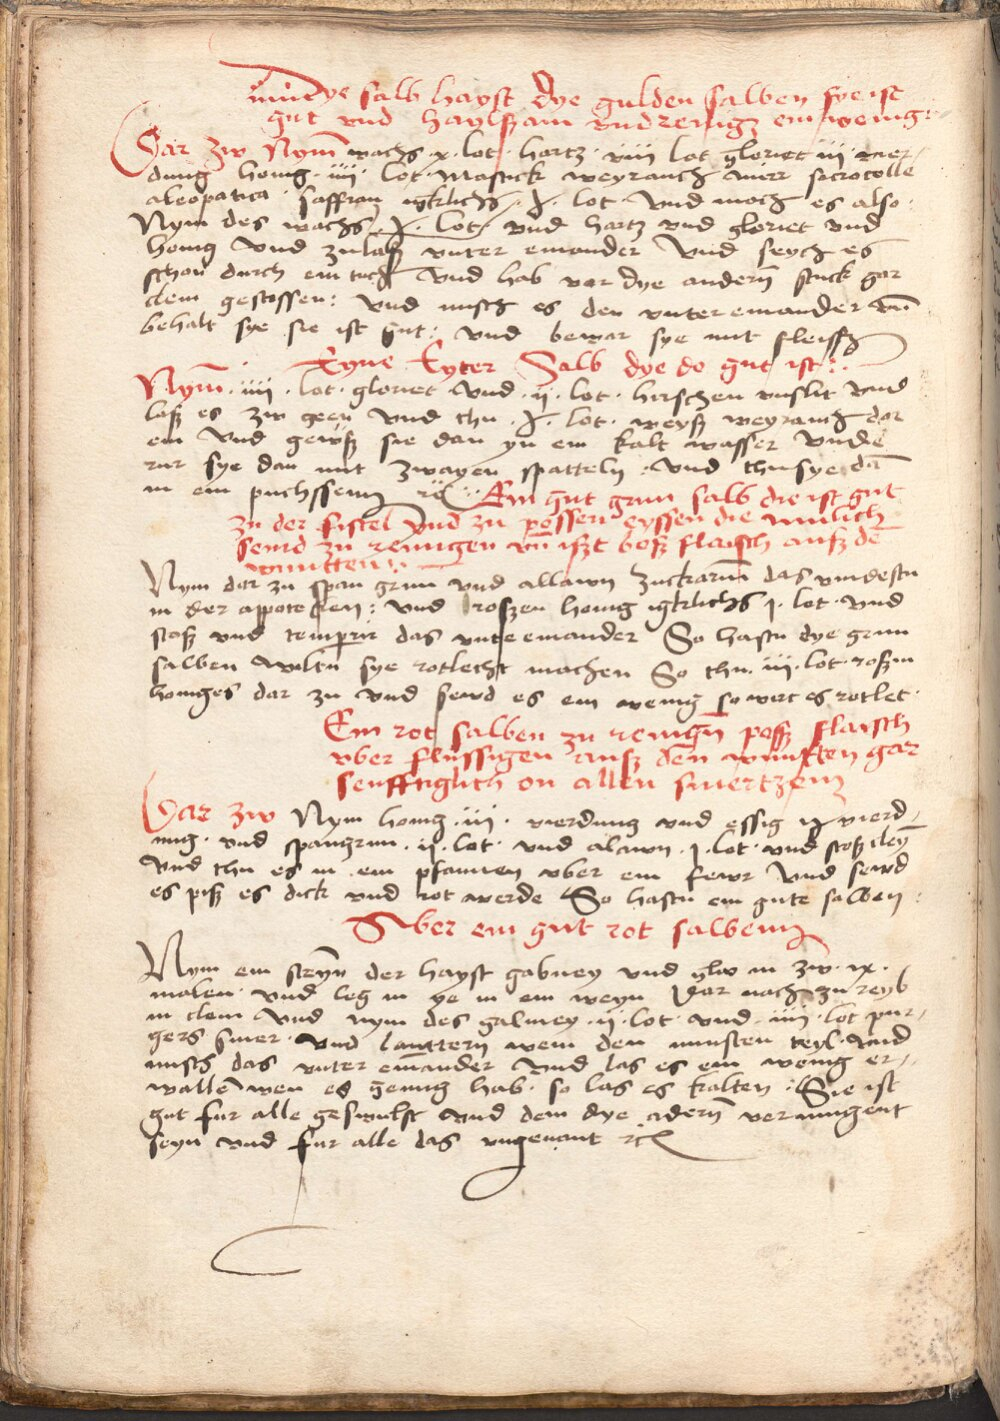 Dye salb hayst dye gulden salben sye ist
gut vnd haylsam vnd reinigt ein wenig
Dar zw Nym wachs x lot hartz viii lot gloriet iii vier-
dung honig iiii lot Mastick weyrauch mirr sarcocolle
aleopatica saffran igklichs lot vnd mach es also
Nym des wachs lot vnd hartz vnd gloriet vnd
honig vnd zulaß vnter einander vnd seych es
schon durch ein tuch vnd hab vor dye andern stuck gar
clein gestossen: vnd misch es den vnter einander vn̄
behalt sye sie ist gut: vnd bewar sye mit fleissz
Eyne Eyter Salb dye do gut ist:
Nym iiii lot gloriet vnd ij lot hirschen vnslit vnd
laß es zw geen vnd thu lot weyß weyrauch dar
ein vnd gewß sie dan yn ein kalt wasser vnd
rur sye dan mit zwayen spatteln: vnd thu sye dā
in ein puchssenn Ein gut grun salb die ist gut
zu der fistel vnd zu possen eyssen die
seind zu reinigen vn̄ ißt boß flaisch auß dē
wuntten:
Nym dar zu span grun vnd allawn das vindestu
in der appotecken: vnd roszen honig igklichs j lot vnd
stoß vnd temperir das vnter einander So hastu dye grun
salben wiltu sye rotlecht machen So thu iii lot roszin
honiges dar zu vnd seud es ein wenig so wirt es rotlet
Ein rot salben zu reinign poß flaisch
vber flussigen auß den wuntten gar
senfftiglich on allen smertzenn
Dar zw Nym honig iii vierdung vnd essig ij vierd-
ung vnd spangrun ij lot vnd alawn j lot vnd stoß cleyn
vnd thu es in ein pfannen vber ein fewr vnd seud
es piß es dick vnd rot werde So hastu ein gute salben:
Aber ein gut rot salbenn
Nym ein steyn der hayst galmey vnd glw in zw ix
malen vnd leg in ye in ein weyn Dar nach zu reyb
in clein vnd nym des galmey ij lot vnd iiii lot pur-
gers smer vnd lauttern wein den minsten teyl vnd
misch das vnter einander vnd las es ein wenig er-
wallē wen es genug hab so las es kalten: Sie ist
gut fur alle geswulst vnd dem dye adern
seyn vnd fur alle das vngenant